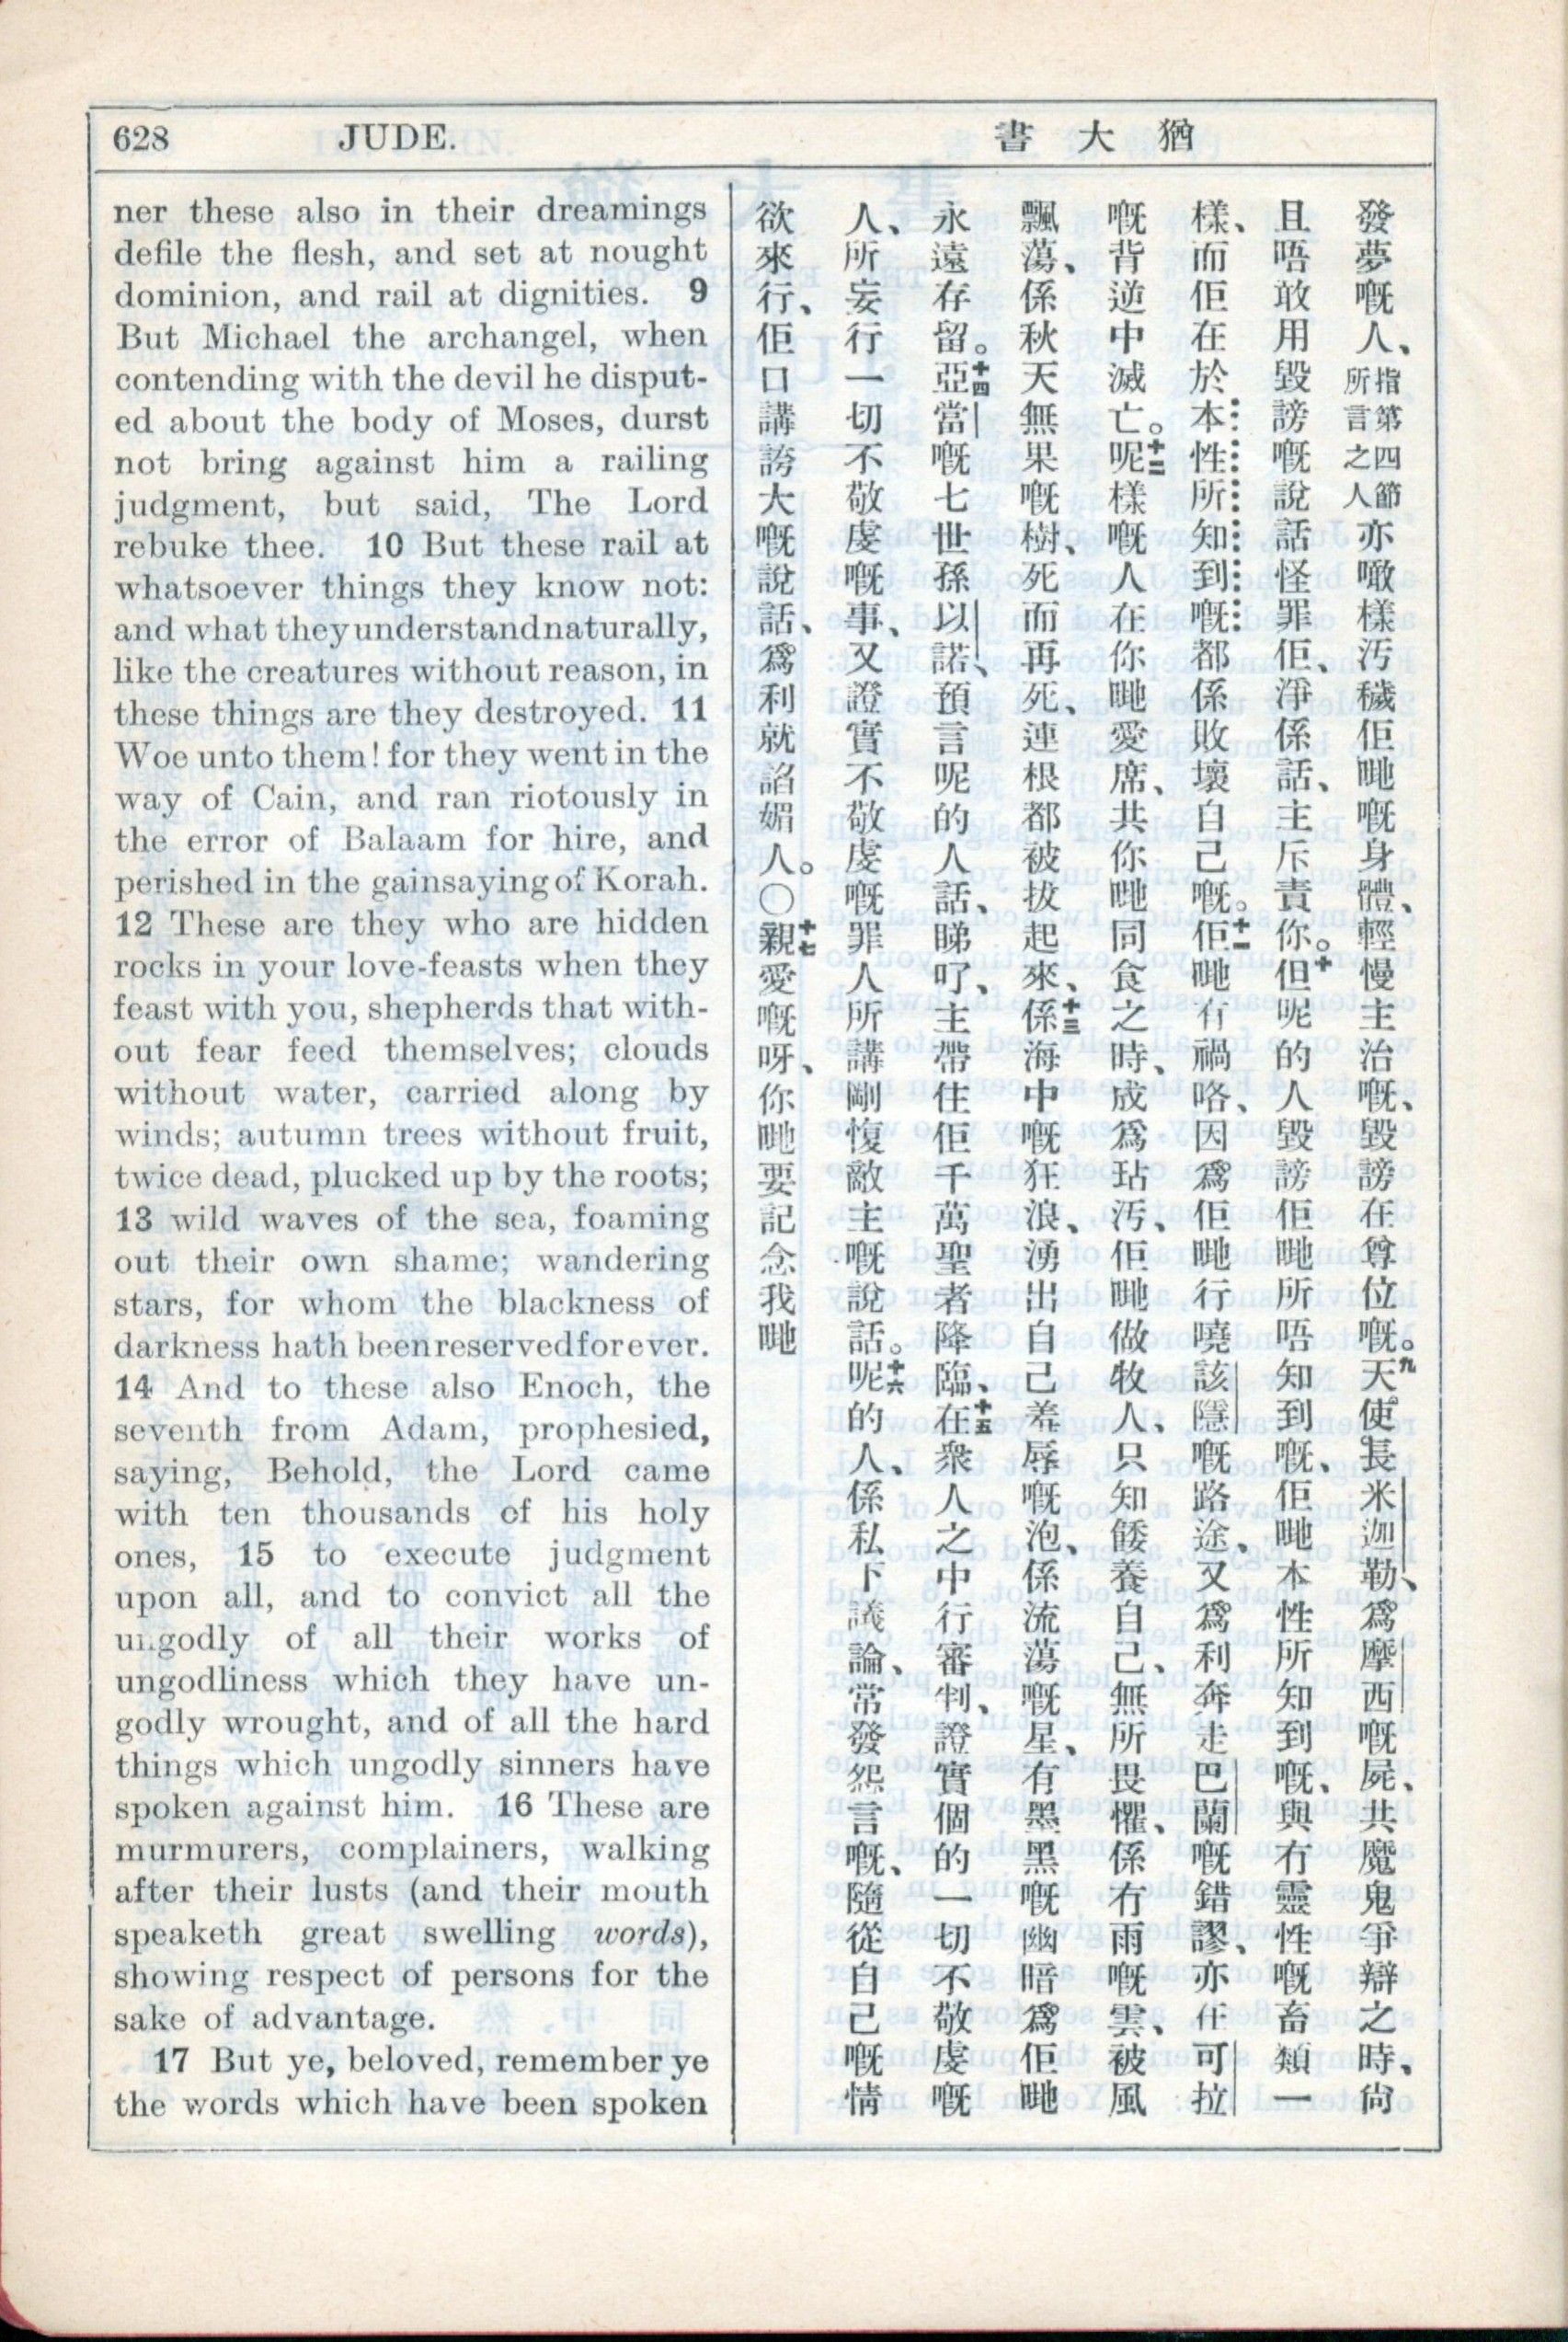 628 JUDE. 猶大書
ner these also in their dreamings
defile the flesh, and set at nought
dominion, and rail at dignities. 9
But Michael the archangel, when
contending with the devil he disput-
ed about the body of Moses, durst
not bring against him a railing
judgment, but said, The Lord
rebuke thee. 10 But these rail at
whatsoever things they know not:
and what they understand naturally,
like the creatures without reason, in
these things are they destroyed. 11
Woe unto them! for they went in the
way of Cain, and ran riotously in
the error of Balaam for hire, and
perished in the gainsaying of Korah.
12 These are they who are hidden
rocks in your love-feasts when they
feast with you, shepherds that with-
out fear feed themselves; clouds
without water, carried along by
winds; autumn trees without fruit,
twice dead, plucked up by the roots;
13 wild waves of the sea, foaming
out their own shame; wandering
stars, for whom the blackness of
darkness hath been reserved forever.
14 And to these also Enoch, the
seventh from Adam, prophesied,
saying, Behold, the Lord came
with ten thousands of his holy
ones, 15 to execute judgment
upon all, and to convict all the
ungodly of all their works of
ungodliness which they have un-
godly wrought, and of all the hard
things which ungodly sinners have
spoken against him. 16 These are
murmurers, complainers, walking
after their lusts (and their mouth
speaketh great swelling words),
showing respect of persons for the
sake of advantage.
17 But ye, beloved, remember ye
the words which have been spoken
發夢嘅人、指第四節所言之人亦噉樣污穢佢哋嘅身體、輕慢主治嘅、毀謗在尊位嘅。九天使長米迦勒、爲摩西嘅屍、共魔鬼爭辯之時、尙
且唔敢用毀謗嘅說話怪罪佢、淨係話、主斥責你。十但呢的人毀謗佢哋所唔知到嘅、佢哋本性所知到嘅、與冇靈性嘅畜類一
樣、而佢在於本性所知到嘅都係敗壞自己嘅。十一佢哋有禍咯、因爲佢哋行曉該隱嘅路途、又爲利奔走巴蘭嘅錯謬、亦在可拉
嘅背逆中滅亡。十二呢樣嘅人在你哋愛席、共你哋同食之時、成爲玷污、佢哋做牧人、只知餧養自己、無所畏懼、係冇雨嘅雲、被風
飄蕩、係秋天無果嘅樹、死而再死、連根都被拔起來、十三係海中嘅狂浪、湧出自己羞辱嘅泡、係流蕩嘅星、有墨黑嘅幽暗爲佢哋
永遠存留。十四亞當嘅七世孫以諾、預言呢的人話、睇吖、主帶住佢千萬聖者降臨、十五在衆人之中行審判、證實個的一切不敬虔嘅
人、所妄行一切不敬虔嘅事、又證實不敬虔嘅罪人所講剛愎敵主嘅說話。十六呢的人、係私下議論、常發怨言嘅、隨從自己嘅情
欲來行、佢口講誇大嘅說話、爲利就諂媚人。〇十七親愛嘅呀、你哋要記念我哋